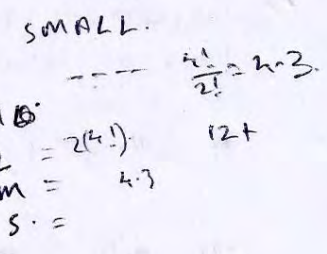 SMALL.
---- 4!/2! = 4.3.
= 2(4!). 12+
m = 4.3
S. =